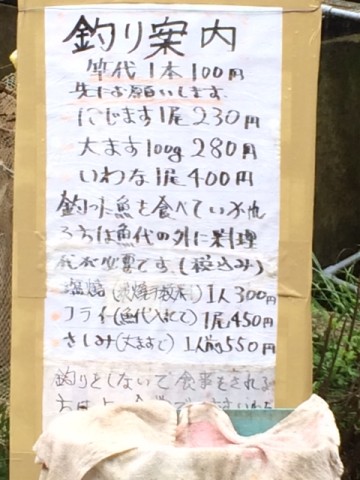 釣り案内
竿代1本100円
先にお願いします.
にじます1尾230円
大ます100g280円
いわな1尾400円
釣った魚を食べていかれ
る方は魚代の外に料理
代が必要です.(税込み)
塩焼() 1人300円
フライ(魚代入れて) 1尾450円
さしみ(大ますで) 1人前550円
釣りをしないで食事をされる